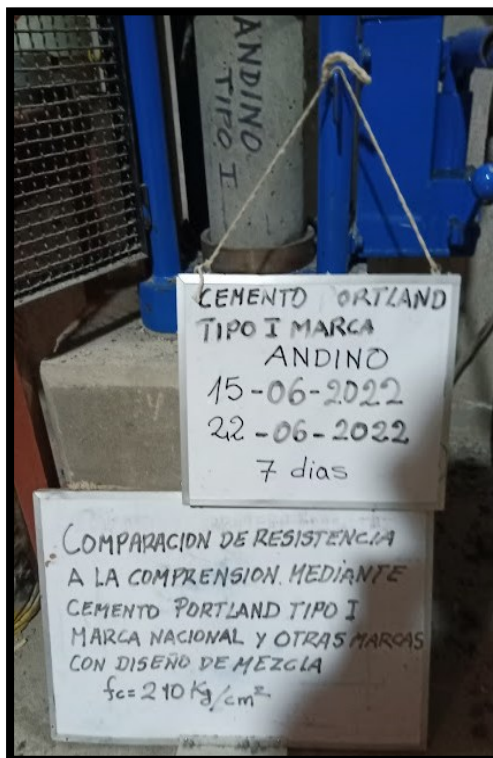 ANDINO
TIPO I
CEMENTO ORTLAND
TIPO I MARCA
ANDINO
15-06-2022
22-06-2022
7 dias
COMPARACION DE RESISTENCIA
A LA COMPRENSION MEDIANTE
CEMENTO PORTLAND TIPO I
MARCA NACIONAL Y OTRAS MARCAS
CON DISEÑO DE MEZCLA
fc=210 Kg/cm²